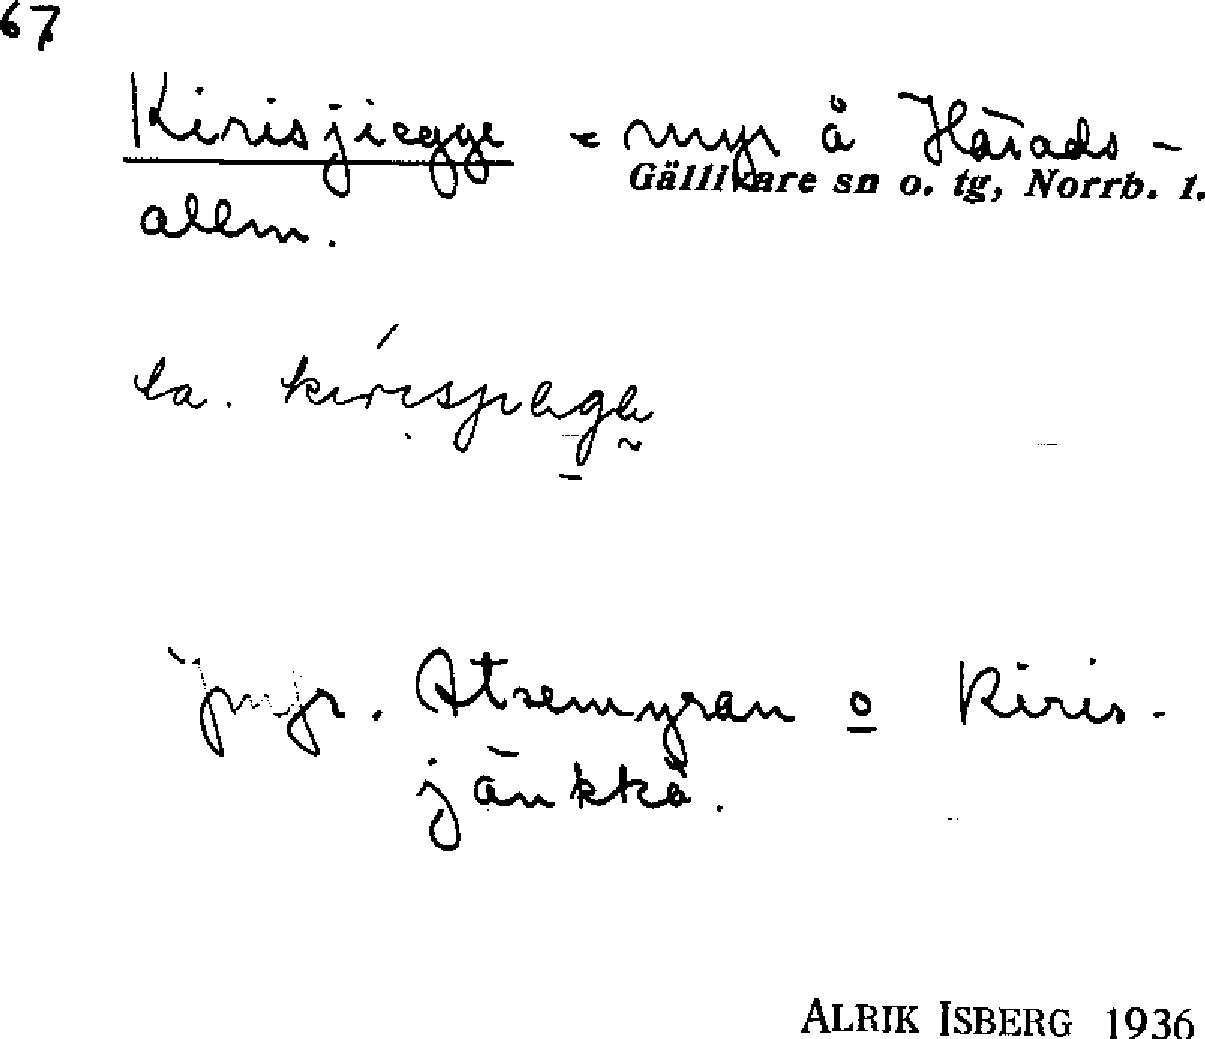 67
Kirisjiegge = myr å Härads-
Gällivare sn o. tg, Norrb. l.
allm.
la.
jmfr. Atsemyran o Kiris-
jänkkä.
ALRIK ISBERG 1936